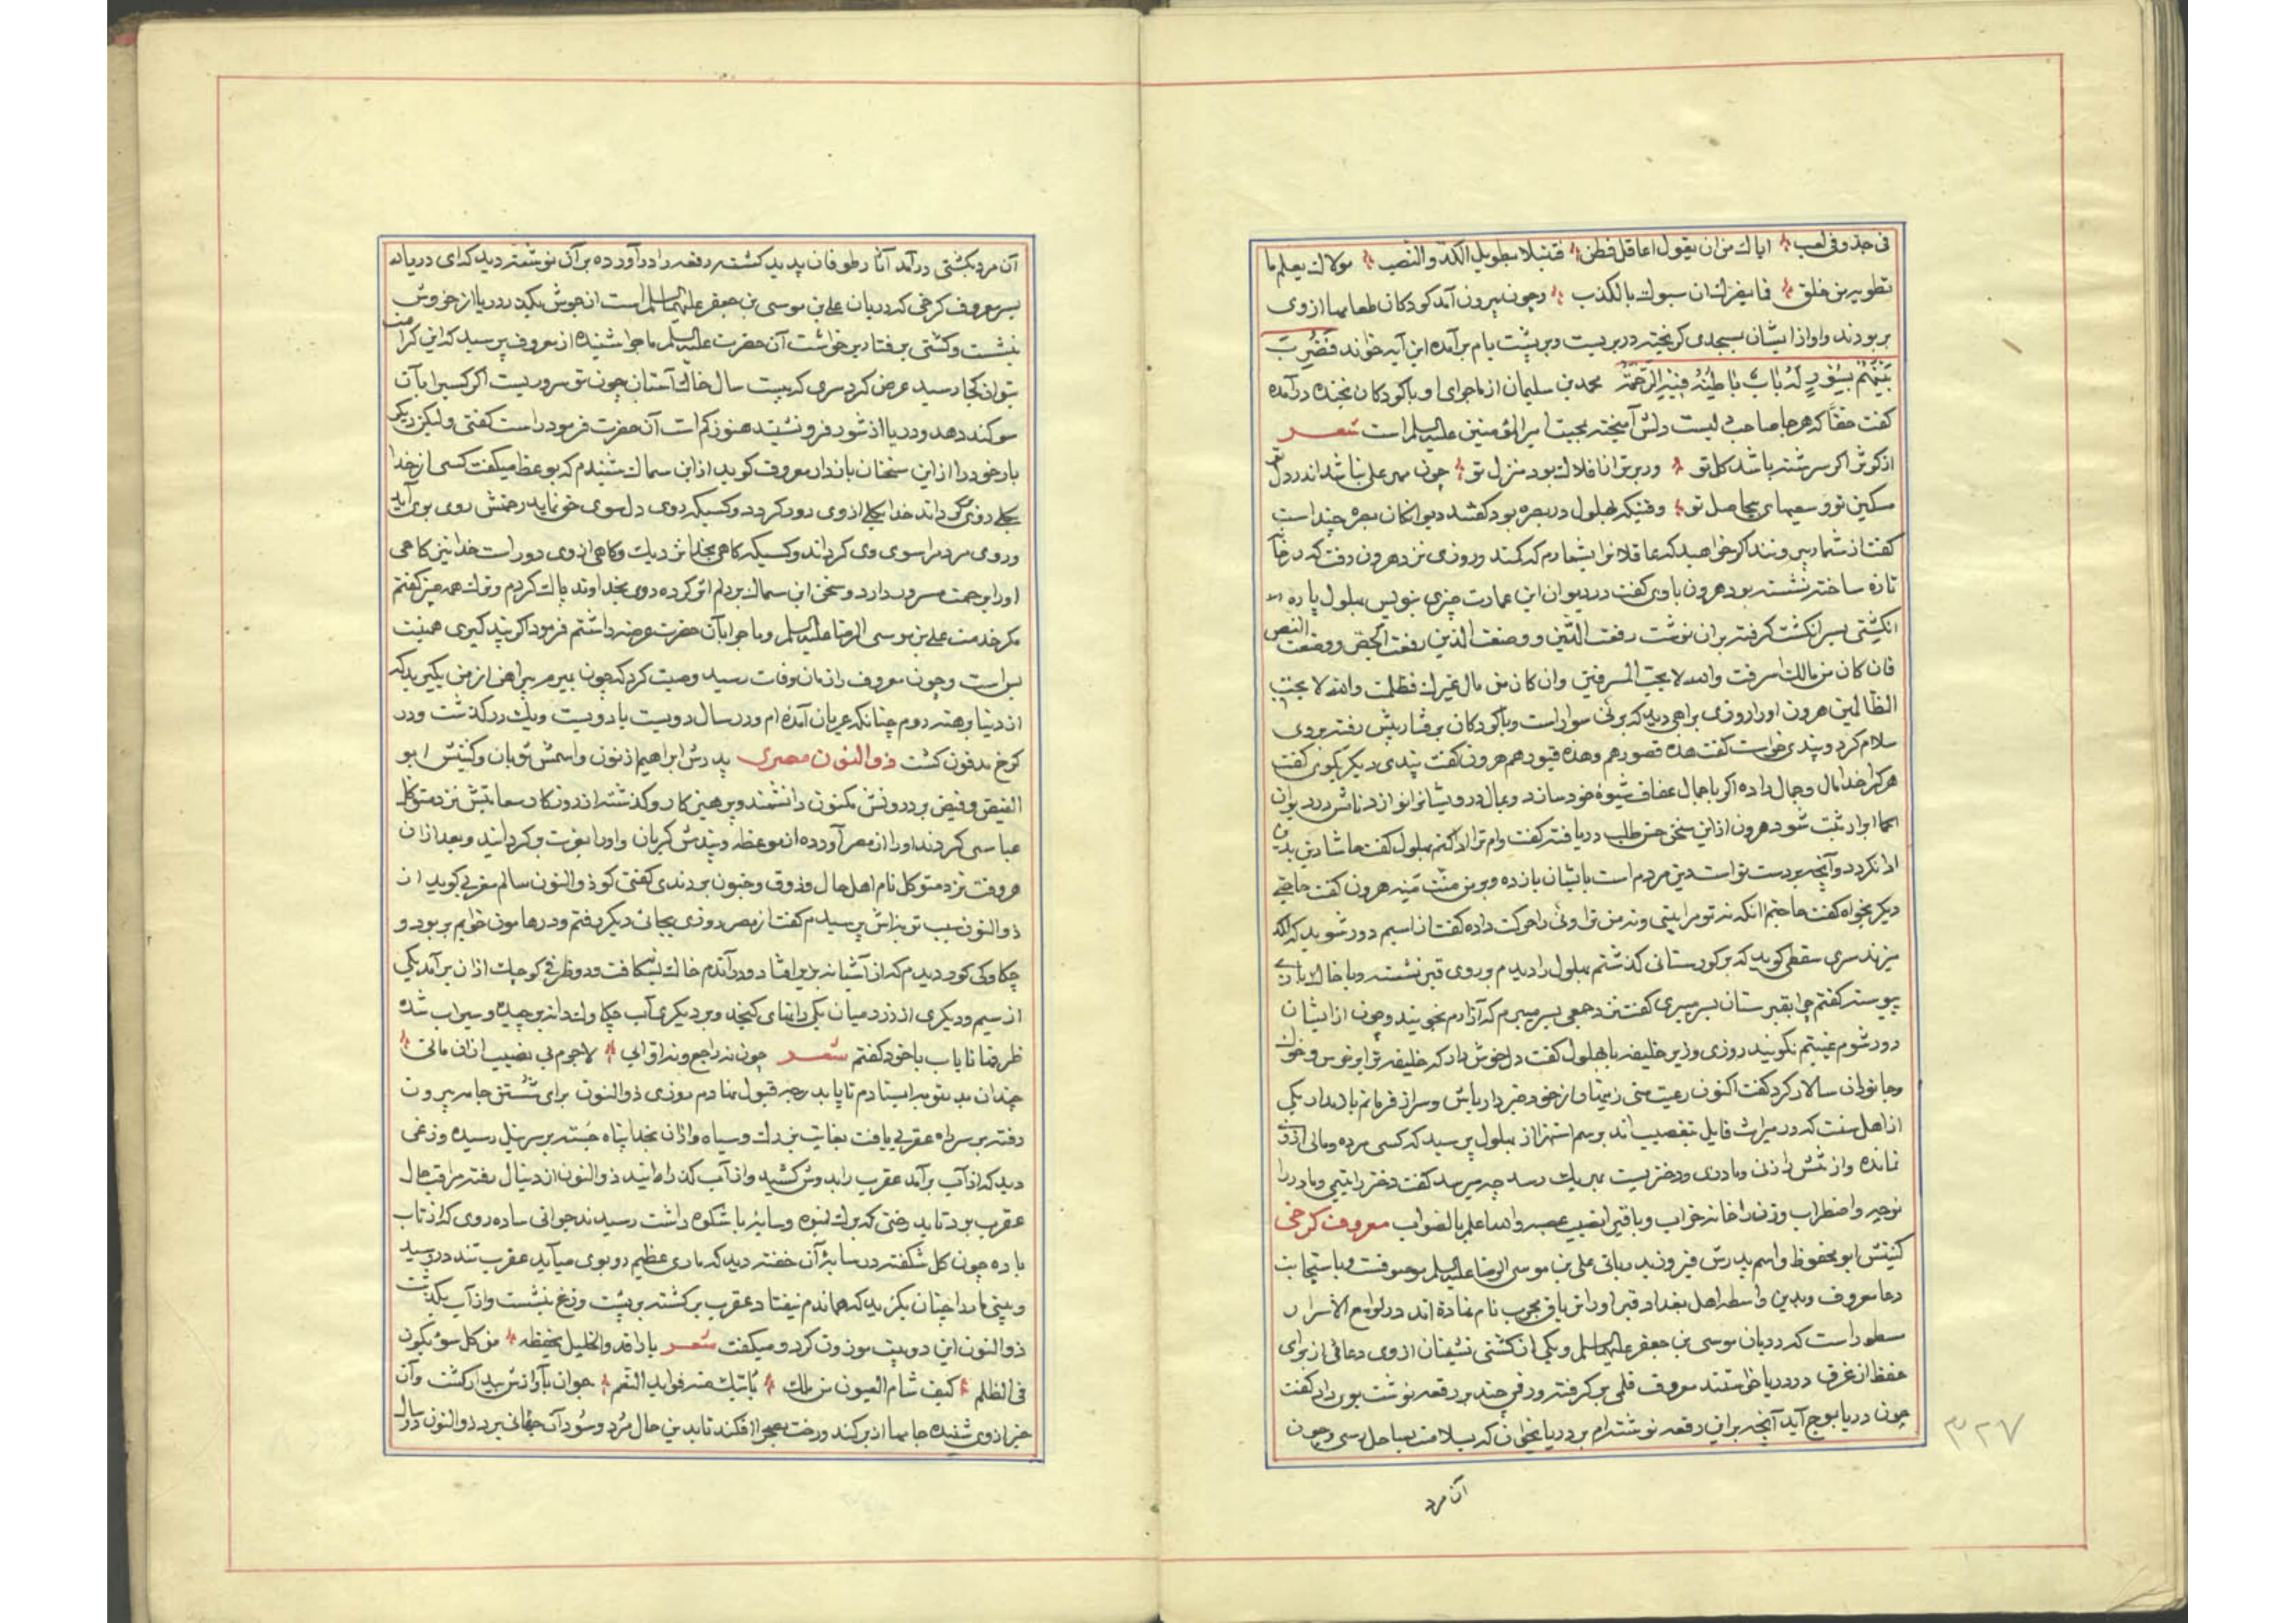 فی جد و فی لعب ایاك من ان یقول اعاقل فطن فتبتلا بطویل الكد و النصب مولاك یعلم ما
تطویه من خلق فما یضرك ان سبوك بالكذب و چون بیرون آمد كودكان طعامها از وی
بربودند و او از ایشان بمسجدی گریخته در بربست و بر پشت بام برآمده این آیه خواند فضرب
بینهم بسور له باب باطنه فیه الرحمة محمد بن سلیمان از ماجرای او با كودكان بخنده درآمده
گفت حقا كه هر جا صاحب دلیست دلش آمیخته بمحبت امیر المؤمنین علیه السلم است شعر
از كوثر اگر سرشته باشد گل تو ور برتر از افلاك بود منزل تو چون مهر علی نباشد اندر دل تو
مسكین تو و سعیهای بیحاصل تو وقتیكه بهلول در بصره بود گفتند دیوانگان بصره چند است
گفت از شمار بیرونند اگر خواهید كه عاقلانرا بشمارم كه كمند و روزی نزد هرون رفت كه در خانه
تازه ساخته نشسته بود هرون با وی گفت در دیوان این عمارت چیزی بنویس بهلول پاره
انگشتی بسر انگشت گرفته بر ان نوشت رفعت الطین و وضعت الدین رفعت الجص و وضعت النص
فان كان من مالك اسرفت والله لا یحب المسرفین و ان كان من مال غیرك فظلمت والله لا یحب
الظالمین هرون او را روزی براهی دید كه بر نی سوار است و با كودكان برفتار پیش رفته بر وی
سلام كرد و پندی خواست گفت هذه قصورهم و هذه قبورهم هرون گفت پندی دیگر بگوی گفت
هر كرا خدا مال و جمال داده اگر با جمال عفاف شیوه خود سازد و بمال درویشانرا نوازد نامش در دیوان
ابرار ثبت شود هرون از این سخن حسن طلب دریافته گفت وام ترا ادا كنم بهلول گفت حاشا دین بدین
ادا نگردد و آنچه بر دست تو است دین مردم است بایشان بازده و بر من منت منه هرون گفت حاجتی
دیگر بخواه گفت حاجتم انكه نه تو مرا بینی و نه من ترا و نی را حركت داده گفت از اسبم دور شوید كه لگد
میزند سری سقطی گوید كه بر گورستانی گذشتم بهلول را دیدم بر روی قبری نشسته و با خاك
پیوسته گفتم چرا بقبرستان بسر میبری گفت نزد جمعی بسر میبرم كه آزارم نجویند و چون از ایشان
دور شوم غیبتم نگویند روزی وزیر خلیفه با بهلول گفت دل خوش دار كه خلیفه ترا بر خرس و خوك
و جانوران سالار كرد گفت اكنون رعیت منی زینهار از خود خبردار باش و سر از فرمانم باز مدار یكی
از اهل سنت كه در میراث قایل بتعصیب اند برسم استهزا از بهلول پرسید كه كسی مرده و مالی از وی
نمانده و از پسش زن و مادری و دختریست بهر یك چه میرسد گفت دختر را یتیمی و مادر را
نوحه و اضطراب و زن را خانه خراب و باقی نصیب عصبه والله اعلم بالصواب معروف كرخی
كنیتش ابو محفوظ و اسم پدرش فیروز بدربانی علی بن موسی الرضا علیه السلم موصوفست و باستجابت
دعا معروف و بدین واسطه اهل بغداد قبر او را تریاق مجرب نام نهاده اند در لواقح الاسرار
مسطور است كه دربان موسی بن جعفر علیهما السلم و یكی از كشتی نشینان از وی دعائی از برای
حفظ از غرق در دریا خواستند معروف قلمی برگرفته و رقمی چند بر رقعه نوشت بوی داد گفت
چون دریا بموج آید آنچه بر این رقعه نوشته ام بر دریا بخوان كه بسلامت بساحل رسی و چون
آن مرد
۳۲۷
آن مرد بكشتی درآمد آثار طوفان پدید گشت رقعه را درآورده بر آن نوشته دید كه ای دریا
بسر معروف كرخی كه دربان علی بن موسی بن جعفر علیهما السلم است از جوش بگذر دریا از خروش
بنشست و كشتی برفتار برخواست آن حضرت علیه السلم ماجرا شنیده از معروف پرسید كه این كرامت
بتو از كجا رسید عرض كرد سری كه بیست سال خاك آستان چون تو سروریست اگر كسیرا بآن
سوگند دهد و دریا از شور فرو نشیند هنوز كم است آن حضرت فرمود راست گفتی و لیكن دیگر
بار خود را از این سخنان بازدار معروف گوید از ابن سماك شنیدم كه بوعظ میگفت كسی از خدا
بكلی روی گرداند خدا بكلی از وی دور گردد و كسیكه روی دل سوی حق نماید رحمتش روی بوی آید
و روی مردم را سوی وی گرداند و كسیكه گاهی بخدا نزدیك و گاهی از وی دور است خدا نیز گاهی
او را برحمت مسرور دارد و سخن ابن سماك بر دلم اثر كرده روی بخداوند پاك كردم و ترك همه چیز گفتم
مگر خدمت علی بن موسی الرضا علیه السلم و ماجرا بآن حضرت عرضه داشتم فرمود اگر پند گیری همینت
بس است و چون معروف را زمان وفات رسید وصیت كرد كه چون بمیرم پیراهن از من بگیرید كه
از دنیا برهنه روم چنانكه عریان آمده ام و در سال دویست یا دویست و یك درگذشت و در
كرخ مدفون گشت ذو النون مصری پدرش ابراهیم ذنون و اسمش ثوبان و كنیتش ابو
الفیض و فیض بر درونش مكنون دانشمند و پرهیزكار و گذشته از دوزگار سعایتش نزد متوكل
عباسی كردند او را از مصر آورده از موعظه و پندش گریان و او را بعزت برگردانید و بعد از ان
هر وقت نزد متوكل نام اهل حال و ذوق و جنون بردندی گفتی كو ذو النون سالم مغربی گوید از
ذو النون سبب توبه اش پرسیدم گفت از مصر روزی بجائی دیگر رفتم و در هامون خوابم بربود و
چكاوكی كور دیدم كه از آشیانه بزیر افتاد و در آندم خاك بشكافت و دو ظرف كوچك از ان برآمد یكی
از سیم و دیگری از زر در میان یكی دانهای كنجد و در دیگری آب چكاوك دانه برچیده و سیراب شده
ظرفها نایاب با خود گفتم شعر چون نه راجع و نه اوابی لاجرم بی نصیب از ان مائی
چندان بدر توبه ایستادم تا باید رجه قبول نهادم روزی ذو النون برای شستن جامه بیرون
رفته بر سر راه عقربی یافت بغایت بزرك و سیاه و از ان بخدا پناه جسته بر سر نیل رسیده وزغی
دید كه از آب برآمد عقرب را بدوش كشید و از آب گذرانید ذو النون از دنبال رفته مراقب حال
عقرب بود تا بدرختی كه برك انبوه و سایه با شكوه داشت رسیدند جوانی ساده روی كه از تاب
باده چون گل شكفته در سایه آن خفته دید كه ماری عظیم رو بوی میآید عقرب تند در رسید
و بینی مار را چنان بگزید كه هماندم بیفتاد عقرب برگشته بر پشت وزغ بنشست و از آب بگذشت
ذو النون این دو بیت موزون كرد و میگفت شعر یا راقدا و الجلیل یحفظه من كل سوء یكون
فی الظلم كیف تنام العیون من ملك یاتیك منه فواید النعم جوان بآوازش بیدار گشت و آن
خبر از وی شنیده جامها از بر كند و رخت بصحرا افكند تا بدین حال مرد و سود آن جهانی برد ذو النون در سال